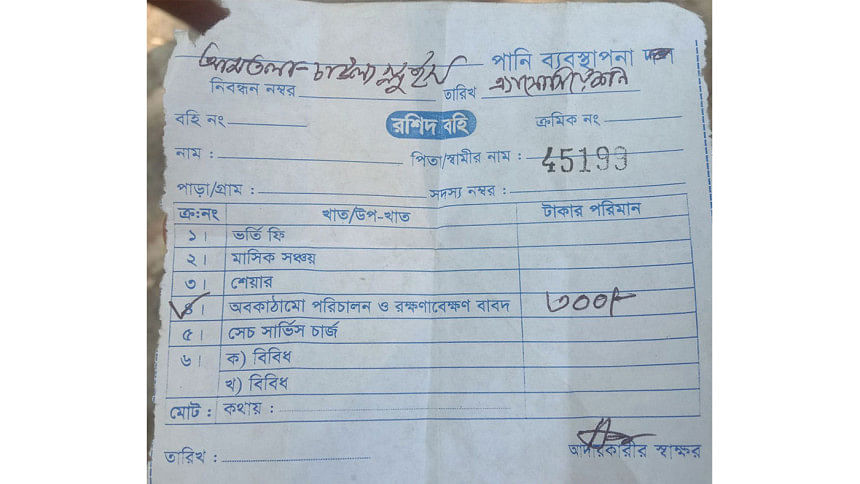 আমতলা-চাওলা স্লুইস পানি ব্যবস্থাপনা
নিবন্ধন নম্বর তারিখ এ্যাসোসিয়েশন
বহি নং রশিদ বহি ক্রমিক নং
নাম : পিতা/স্বামীর নাম : 45199
পাড়া/গ্রাম : সদস্য নম্বর :
ক্র:নং খাত/উপ-খাত টাকার পরিমান
১। ভর্তি ফি
২। মাসিক সঞ্চয়
৩। শেয়ার
৪। অবকাঠামো পরিচালন ও রক্ষণাবেক্ষণ বাবদ ৩০০/-
৫। সেচ সার্ভিস চার্জ
৬। ক) বিবিধ
খ) বিবিধ
মোট : কথায় :
তারিখ : আদায়কারীর স্বাক্ষর